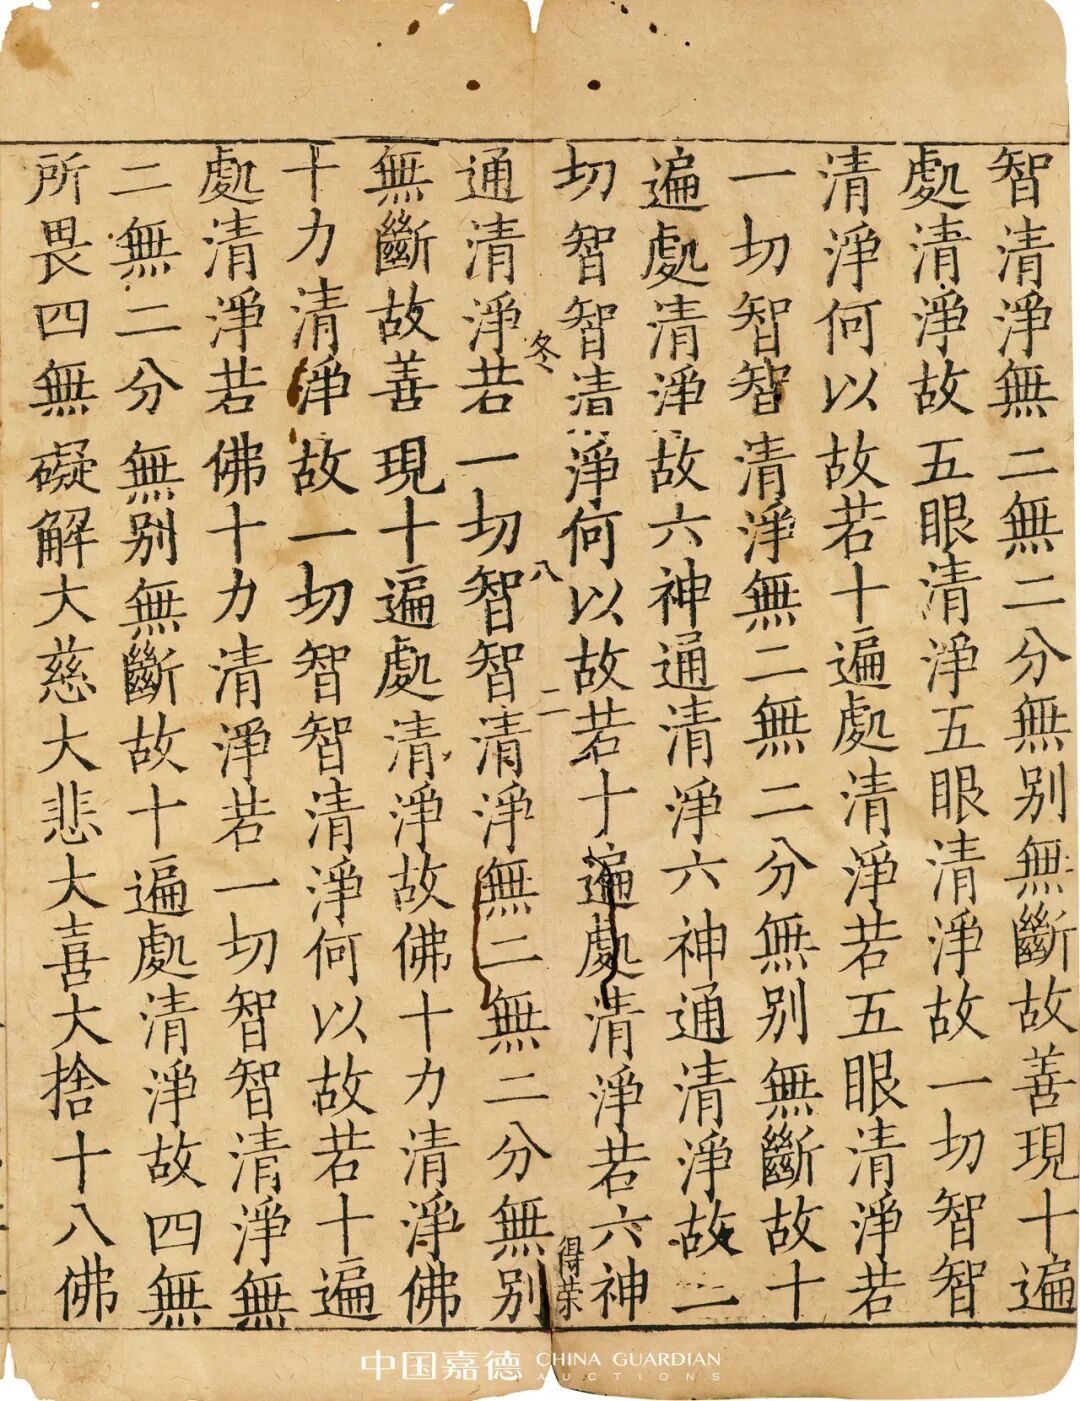 智清淨無二無二分無别無斷故善現十遍
處清淨故五眼清淨五眼清淨故一切智智
清淨何以故若十遍處清淨若五眼清淨若
一切智智清淨無二無二分無别無斷故十
遍處清淨故六神通清淨六神通清淨故一
切智智清淨何以故若十遍處清淨若六神
冬 八 二 得荣
通清淨若一切智智清淨無二無二分無别
無斷故善現十遍處清淨故佛十力清淨佛
十力清淨故一切智智清淨何以故若十遍
處清淨若佛十力清淨若一切智智清淨無
二無二分無别無斷故十遍處清淨故四無
所畏四無礙解大慈大悲大喜大捨十八佛
中国嘉德 CHINA GUARDIAN
AUCTIONS